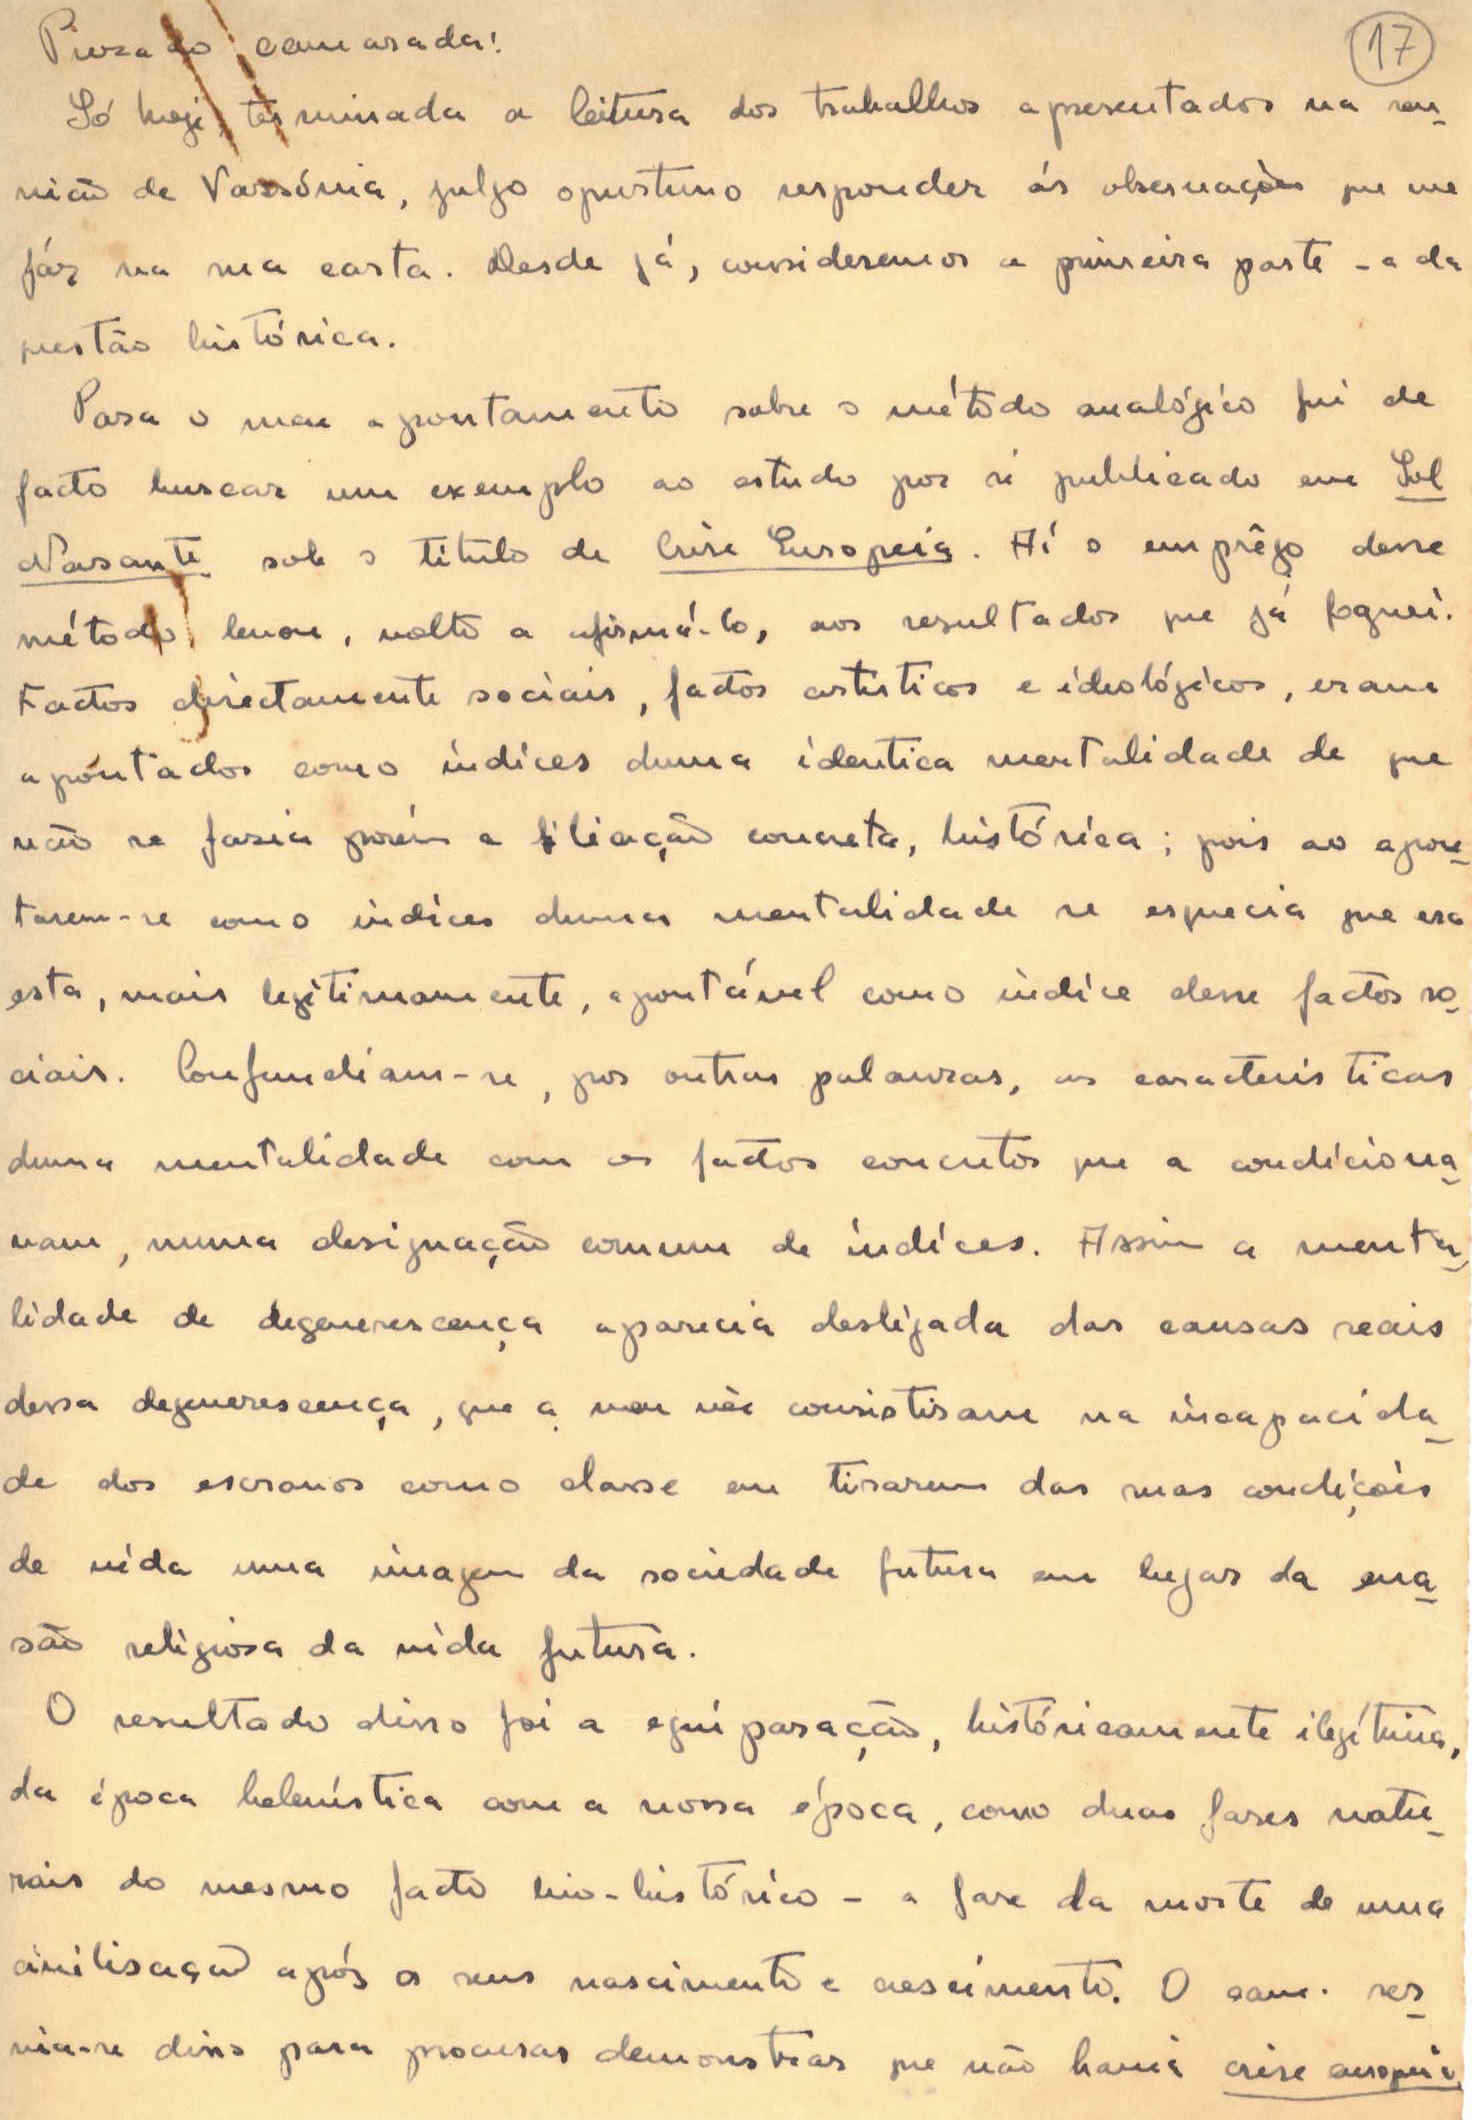 Prezado camarada!
17
Só hoje, terminada a leitura dos trabalhos apresentados na reu-
nião de Varsóvia, julgo oportuno responder ás observações que me
fáz na sua carta. Desde já, consideremos a primeira parte - a da
questão histórica.
Para o meu apontamento sobre o método analógico fui de
facto buscar um exemplo ao estudo por si publicado em Sol
Nascente sob o titulo de Crise Europeia. Aí o emprêgo desse
método levou, volto a afirmá-lo, aos resultados que já foquei.
Factos directamente sociais, factos artisticos e ideológicos, eram
apontados como indices duma identica mentalidade de que
não se fazia porém a filiação concreta, histórica; pois ao apon-
tarem-se como indices duma mentalidade se esquecia que era
esta, mais legitimamente, apontável como indice desse factos so-
ciais. Confundiam-se, por outras palavras, as caracteristicas
duma mentalidade com os factos concretos que a condiciona-
vam, numa designação comum de indices. Assim a menta-
lidade de degenerescença aparecia desligada das causas reais
dessa degenerescença, que a meu vêr consistiram na incapacida-
de dos escravos como classe em tirarem das suas condições
de vida uma imagem da sociedade futura em lugar da eva-
são religiosa da vida futura.
O resultado disso foi a equiparação, históricamente ilegítima,
da época helenística com a nossa época, como duas fases natu-
rais do mesmo facto bio-histórico - a fase da morte de uma
civilisação após o seu nascimento e crescimento. O cam. ser-
via-se disso para procurar demonstrar que não havia crise europeia